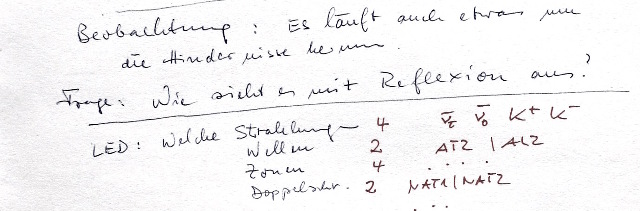 Beobachtung: Es läuft auch etwas um
die Hindernisse herum.
Frage: Wie sieht es mit Reflexion aus?
LED: Welche Strahlung 4 K+ K-
Wellen 2 AT2 | AL2
Zonen 4 . . . .
Doppelschr. 2 NAT1 | NAT2
. . .